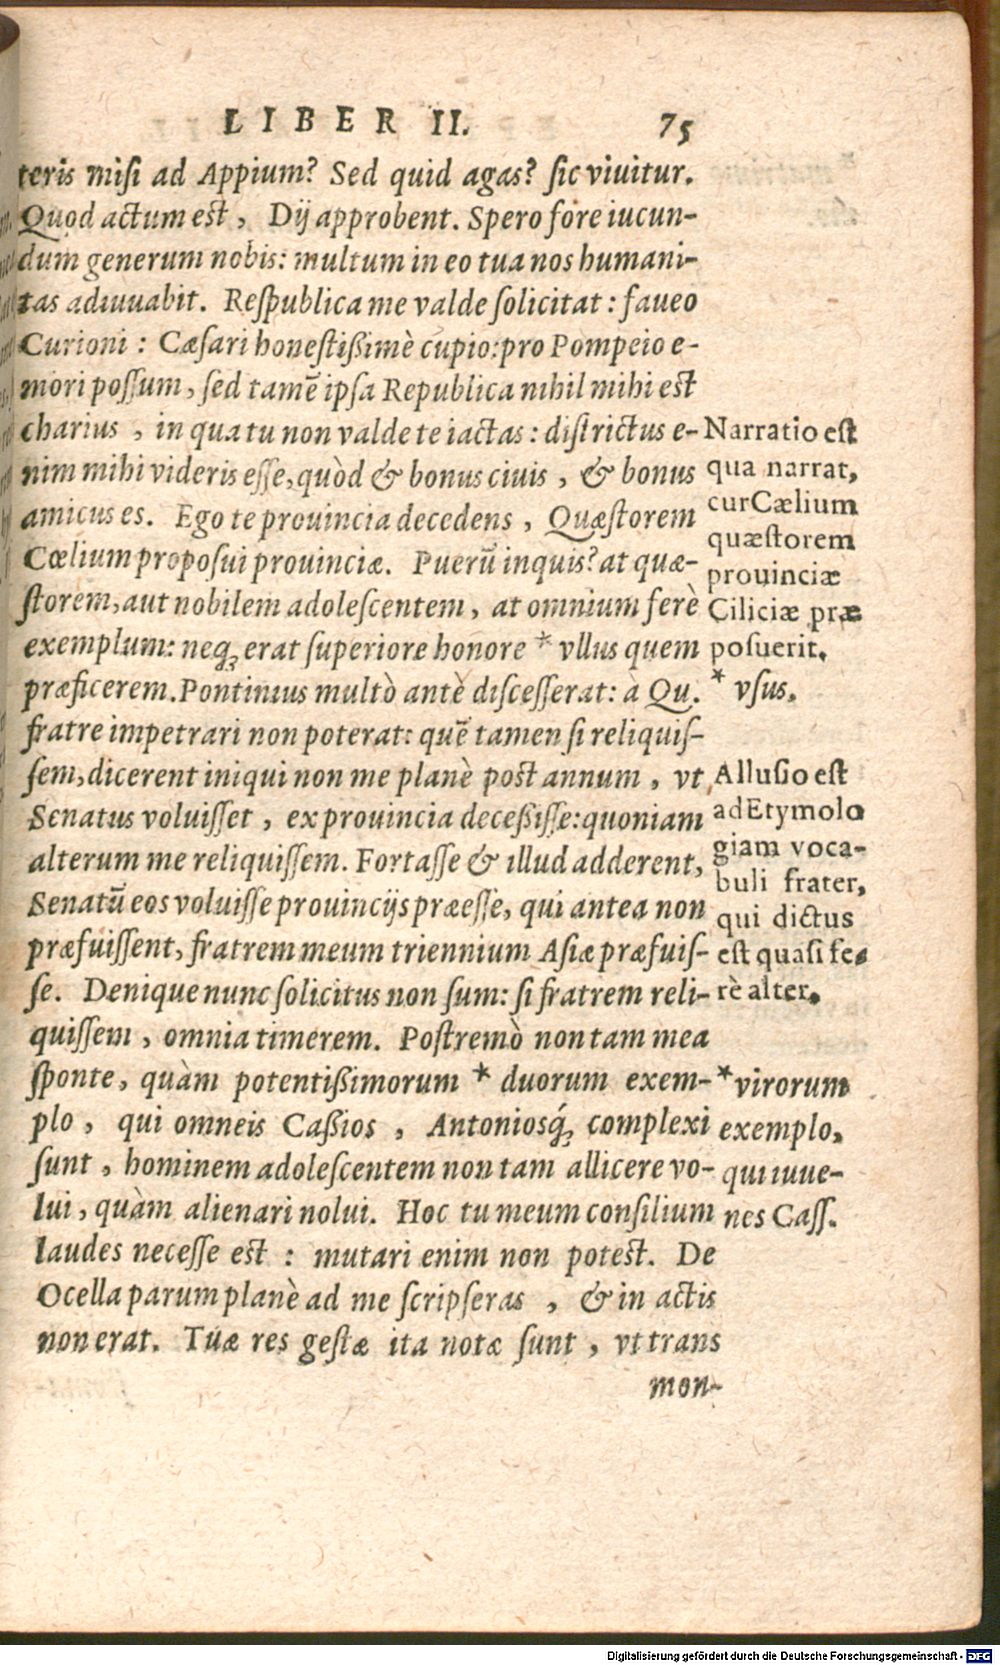 LIBER II. 75
teris misi ad Appium? Sed quid agas? sic viuitur.
Quod actum est, Dij approbent. Spero fore iucun-
dum generum nobis: multum in eo tua nos humani-
tas adiuuabit. Respublica me valde solicitat: faueo
Curioni: Cæsari honestißimè cupio: pro Pompeio e-
mori possum, sed tamē ipsa Republica nihil mihi est
charius, in qua tu non valde te iactas: districtus e-
nim mihi videris esse, quòd & bonus ciuis, & bonus
amicus es. Ego te prouincia decedens, Quæstorem
Cœlium proposui prouinciæ. Puerū inquis? at quæ-
storem, aut nobilem adolescentem, at omnium ferè
exemplum: neq; erat superiore honore * vllus quem
præficerem. Pontinius multò antè discesserat: à Qu.
fratre impetrari non poterat: quē tamen si reliquis-
sem, dicerent iniqui non me planè post annum, vt
Senatus voluisset, ex prouincia deceßisse: quoniam
alterum me reliquissem. Fortasse & illud adderent,
Senatū eos voluisse prouincijs præesse, qui antea non
præfuissent, fratrem meum triennium Asiæ præfuis-
se. Denique nunc solicitus non sum: si fratrem reli-
quissem, omnia timerem. Postremò non tam mea
sponte, quàm potentißimorum * duorum exem-
plo, qui omneis Caßios, Antoniosq́; complexi
sunt, hominem adolescentem non tam allicere vo-
lui, quàm alienari nolui. Hoc tu meum consilium
laudes necesse est: mutari enim non potest. De
Ocella parum planè ad me scripseras, & in actis
non erat. Tuæ res gestæ ita notæ sunt, vt trans
mon-
Narratio est
qua narrat,
cur Cælium
quæstorem
prouinciæ
Ciliciæ præ
posuerit.
* vsus.
Allusio est
ad Etymolo
giam voca-
buli frater,
qui dictus
est quasi fe-
rè alter.
* virorum
exemplo,
qui iuue-
nes Cass.
Digitalisierung gefördert durch die Deutsche Forschungsgemeinschaft - DFG